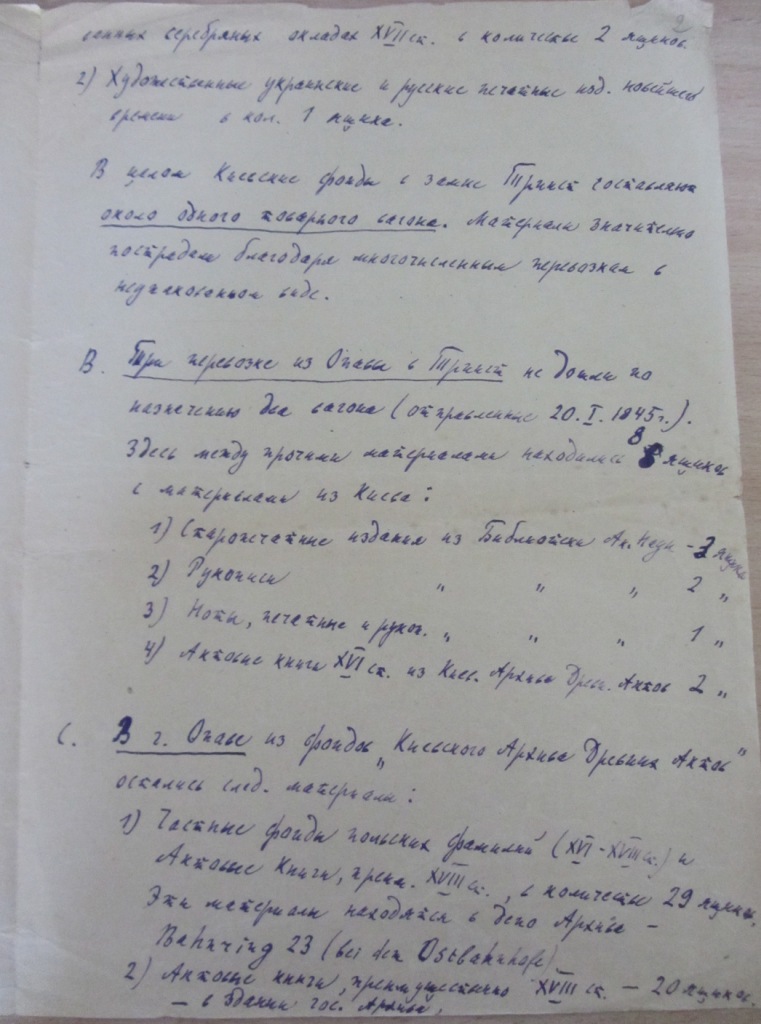 2
ценных серебряных окладах XVII ст. в количестве 2 ящиков.
2) Художественные украинские и русские печатные изд. новейшего
времени в кол. 1 ящика.
В целом Киевские фонды в замке Тршист составляют
около одного товарного вагона. Материалы значительно
пострадали благодаря многочисленным перевозкам в
неупакованном виде.
B. При перевозке из Опавы в Тршист не дошли по
назначению два вагона (отправленные 20.I.1845 г.).
Здесь между прочими материалами находились 8 ящиков
с материалами из Киева:
1) Старопечатные издания из Библиотеки Ак. Наук - 3 ящика
2) Рукописи " " " 2 "
3) Ноты, печатные и рукоп. " " " 1 "
4) Актовые книги XVI ст. из Киев. Архива Древ. Актов 2 "
C. В г. Опаве из фондов „Киевского Архива Древних Актов"
остались след. материалы:
1) Частные фонды польских фамилий (XVI-XVIII ст.) и
Актовые Книги, преим. XVIII ст., в количестве 29 ящиков.
Эти материалы находятся в депо Архива -
Bahnring 23 (bei dem Ostbahnhofe)
2) Актовые книги, преимущественно XVIII ст. - 20 ящиков.
- в здании гос. Архива.